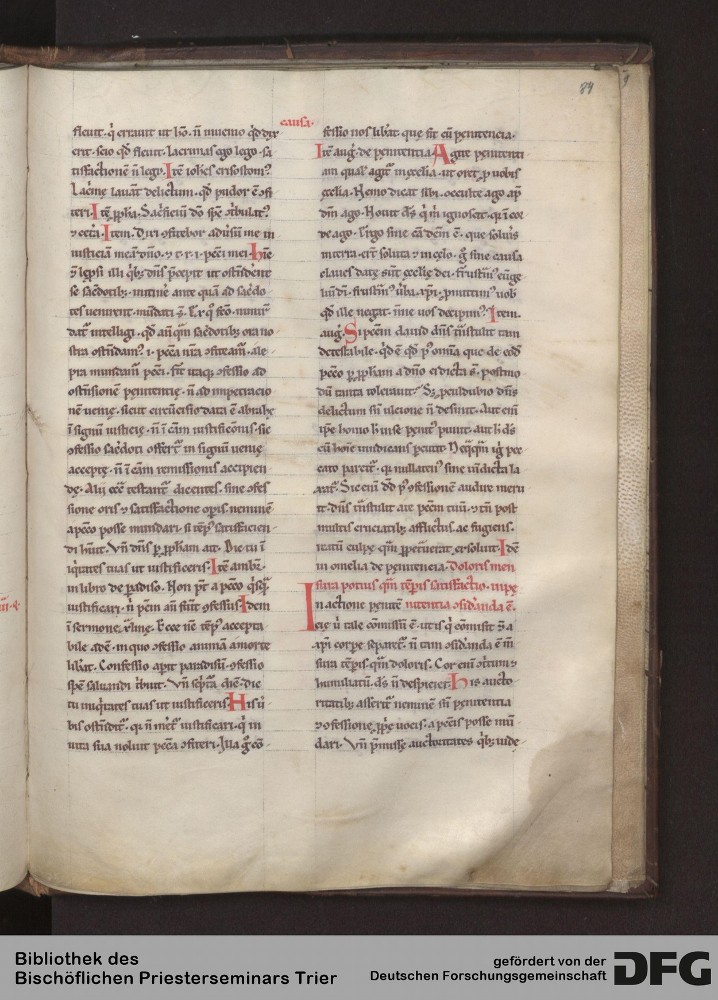 causa.
89
fleuit. q̇ errauit ut hō. n̄ inuenio qd̄ dix
erit. scio qd̄ fleuit. lacrimas ego lego. sa
tisfactionē n̄ lego. Itē ioh̄es crisostom᷒.
Lac̄me lauāt delictum. qd̄ pudor ē ꝯfi
teri. Itē ꝓpha. Sac̄ficiū dō spc̄ ꝯtbulat᷒.
⁊ cet̄a. Item. Dixi ꝯfitebor adūsū me in
iusticiā meā dn̄o. ⁊ t. r. i. pecc̄i mei. Hīc
⁊ lep̄si illi q̇b᷒ dn̄s p̄cepit ut ostn̄derēt
se sac̄dotib᷒. in itinē ante quā ad sac̄do
tes uenirent. mūdati s̄. Ex q᷒ fc̄o. mnīr
dat᷑ intelligi. qd̄ an̄ qm̄ sac̄dotib᷒ ora no
stra ostn̄dam᷒. i. pecc̄a nr̄a ꝯfiteam᷑. a le
pra mundam᷑ pecc̄i. Fit itaq; ꝯfessio ad
ostn̄sionē penitentię. n̄ ad impetracio
nē uenię. sicut circūcisio data ē abrahę
ī signū iusticię. n̄ ī cām iustificōnis. sic
ꝯfessio sac̄doti offert᷑ in signum uenię
acceptę. n̄ ī cām remissionis accipien
dę. Alij ec̄ᵒ testant᷑ dicentes. sine ꝯfes
sione oris ⁊ satisfactione op̄is neminē
a pecc̄o posse mundari. si temp᷒ satisficien
di hūit. Vn̄ dn̄s ꝑ ꝓpham ait. Dic tu ī
iq̇tates tuas ut iustificeris. Itē amb᷒.
in libro de padiso. Non pōt a pecc̄o q̇sq̄
iustificari. n̄ pecc̄m an̄ fuīt ꝯfessus. Idem
ī sermone. Ecce nc̄ temp᷒ accepta
bile adē. in quo ꝯfessio animā a morte
libat. Confessio apit paradisū. ꝯfessio
spē saluandi t̄buit. Vn̄ sc̄pt̄a dic̄. Dic
tu iniq̇tates tuas ut iustificeris. His ū
bis ostn̄dit᷑. q̇ n̄ meret᷑ iustificari. q̇ in
uita sua noluit pecc̄a ꝯfiteri. Illa ḡ cō
fessio nos libat. que fit cū penitencia.
Itē aug̃. de penitentia. Agite peniteti
am qual᷑ agit᷑ in ęcclia. ut oret ꝓ uobis
ęcclia. Nemo dicat sibi. occulte ago ap̄
dm̄ ago. Nouit d̄s q̇ m̄ ignoscat. q̇ ī cor
de ago. Ergo sine cā dc̄m ē. que soluis
in terra. erīt soluta ⁊ in cęlo. ḡ sine causa
claues datę sūt ęcclie dei. frustm᷒ euīge
liū dī. frustm᷒ ūba xp̄i. ꝓmittim᷒ uob
qd̄ ille negat. nn̄e uos decipim᷒. Item.
aug̃. Si pecc̄m dauid dn̄s n̄ stulit tam
detestabile. qd̄ ē qd̄ p᷒ omīa que de eod̄
pecc̄o ꝑ ꝓpham a dn̄o ei dicta s̄. postmo
dū tanta tolerauit. S᷒; peuldubio dn̄s
delictum sn̄ ulcione n̄ deserit. Aut em̄
ip̄e homo h̄ in se penit᷒ punit. aut h̄ d̄s
cū hoīe uindicans percutit. Neq̇qm̄ iḡ pec
cato parcit᷑. q̇ nullaten᷒ sine uīdicta la
xat᷑. Sic enī dd̄ p᷒ ꝯfessionē audire meru
it. dn̄s n̄stulit ate pecc̄m tuū. ⁊ tn̄ post
multis cruciatib᷒ afflict᷒. ac fugiens.
reatū culpę quē ꝑpetrauerat exsoluit. Idē
in omelia de penitencia. Dolores men
sura potius qm̄ tēpis satisfactio. inpę
In actione penitē nitentia ꝯsid̄anda ē.
cię ū tale cōmissū ē. ut is q̇ cōmisit ꝯ a
xp̄i corpe separet᷑. n̄ tam ꝯsid̄anda ē m̄
sura tēpis qm̄ doloris. Cor enī ꝯtritū ⁊
humiliatū. d̄s n̄ despiciet. His aucto
ritatib᷒ asserit᷑ neminē sn̄ penitentia
⁊ ꝯfessione ꝓp̄e uocis. a pecc̄is posse mū
dari. Vn̄ p̄misse auctoritates q̇b᷒ uide
Bibliothek des
Bischöflichen Priesterseminars Trier
gefördert von der
Deutschen Forschungsgemeinschaft
DFG